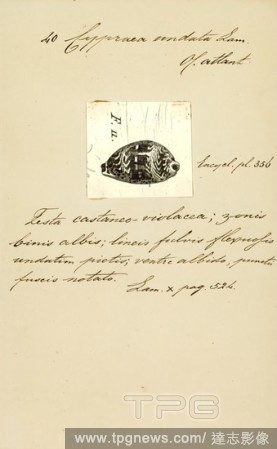 40 Cypraea undata Lam.
O. atlant.
F. a
Encycl. pl. 356
Testa castaneo-violacea; zonis
binis albis; lineis fulvis flexuosis
undatim pictis; ventre albido, punctis
fuscis notato.
Lam. x pag. 524.
TPG
www.tpgnews.com/達志影像